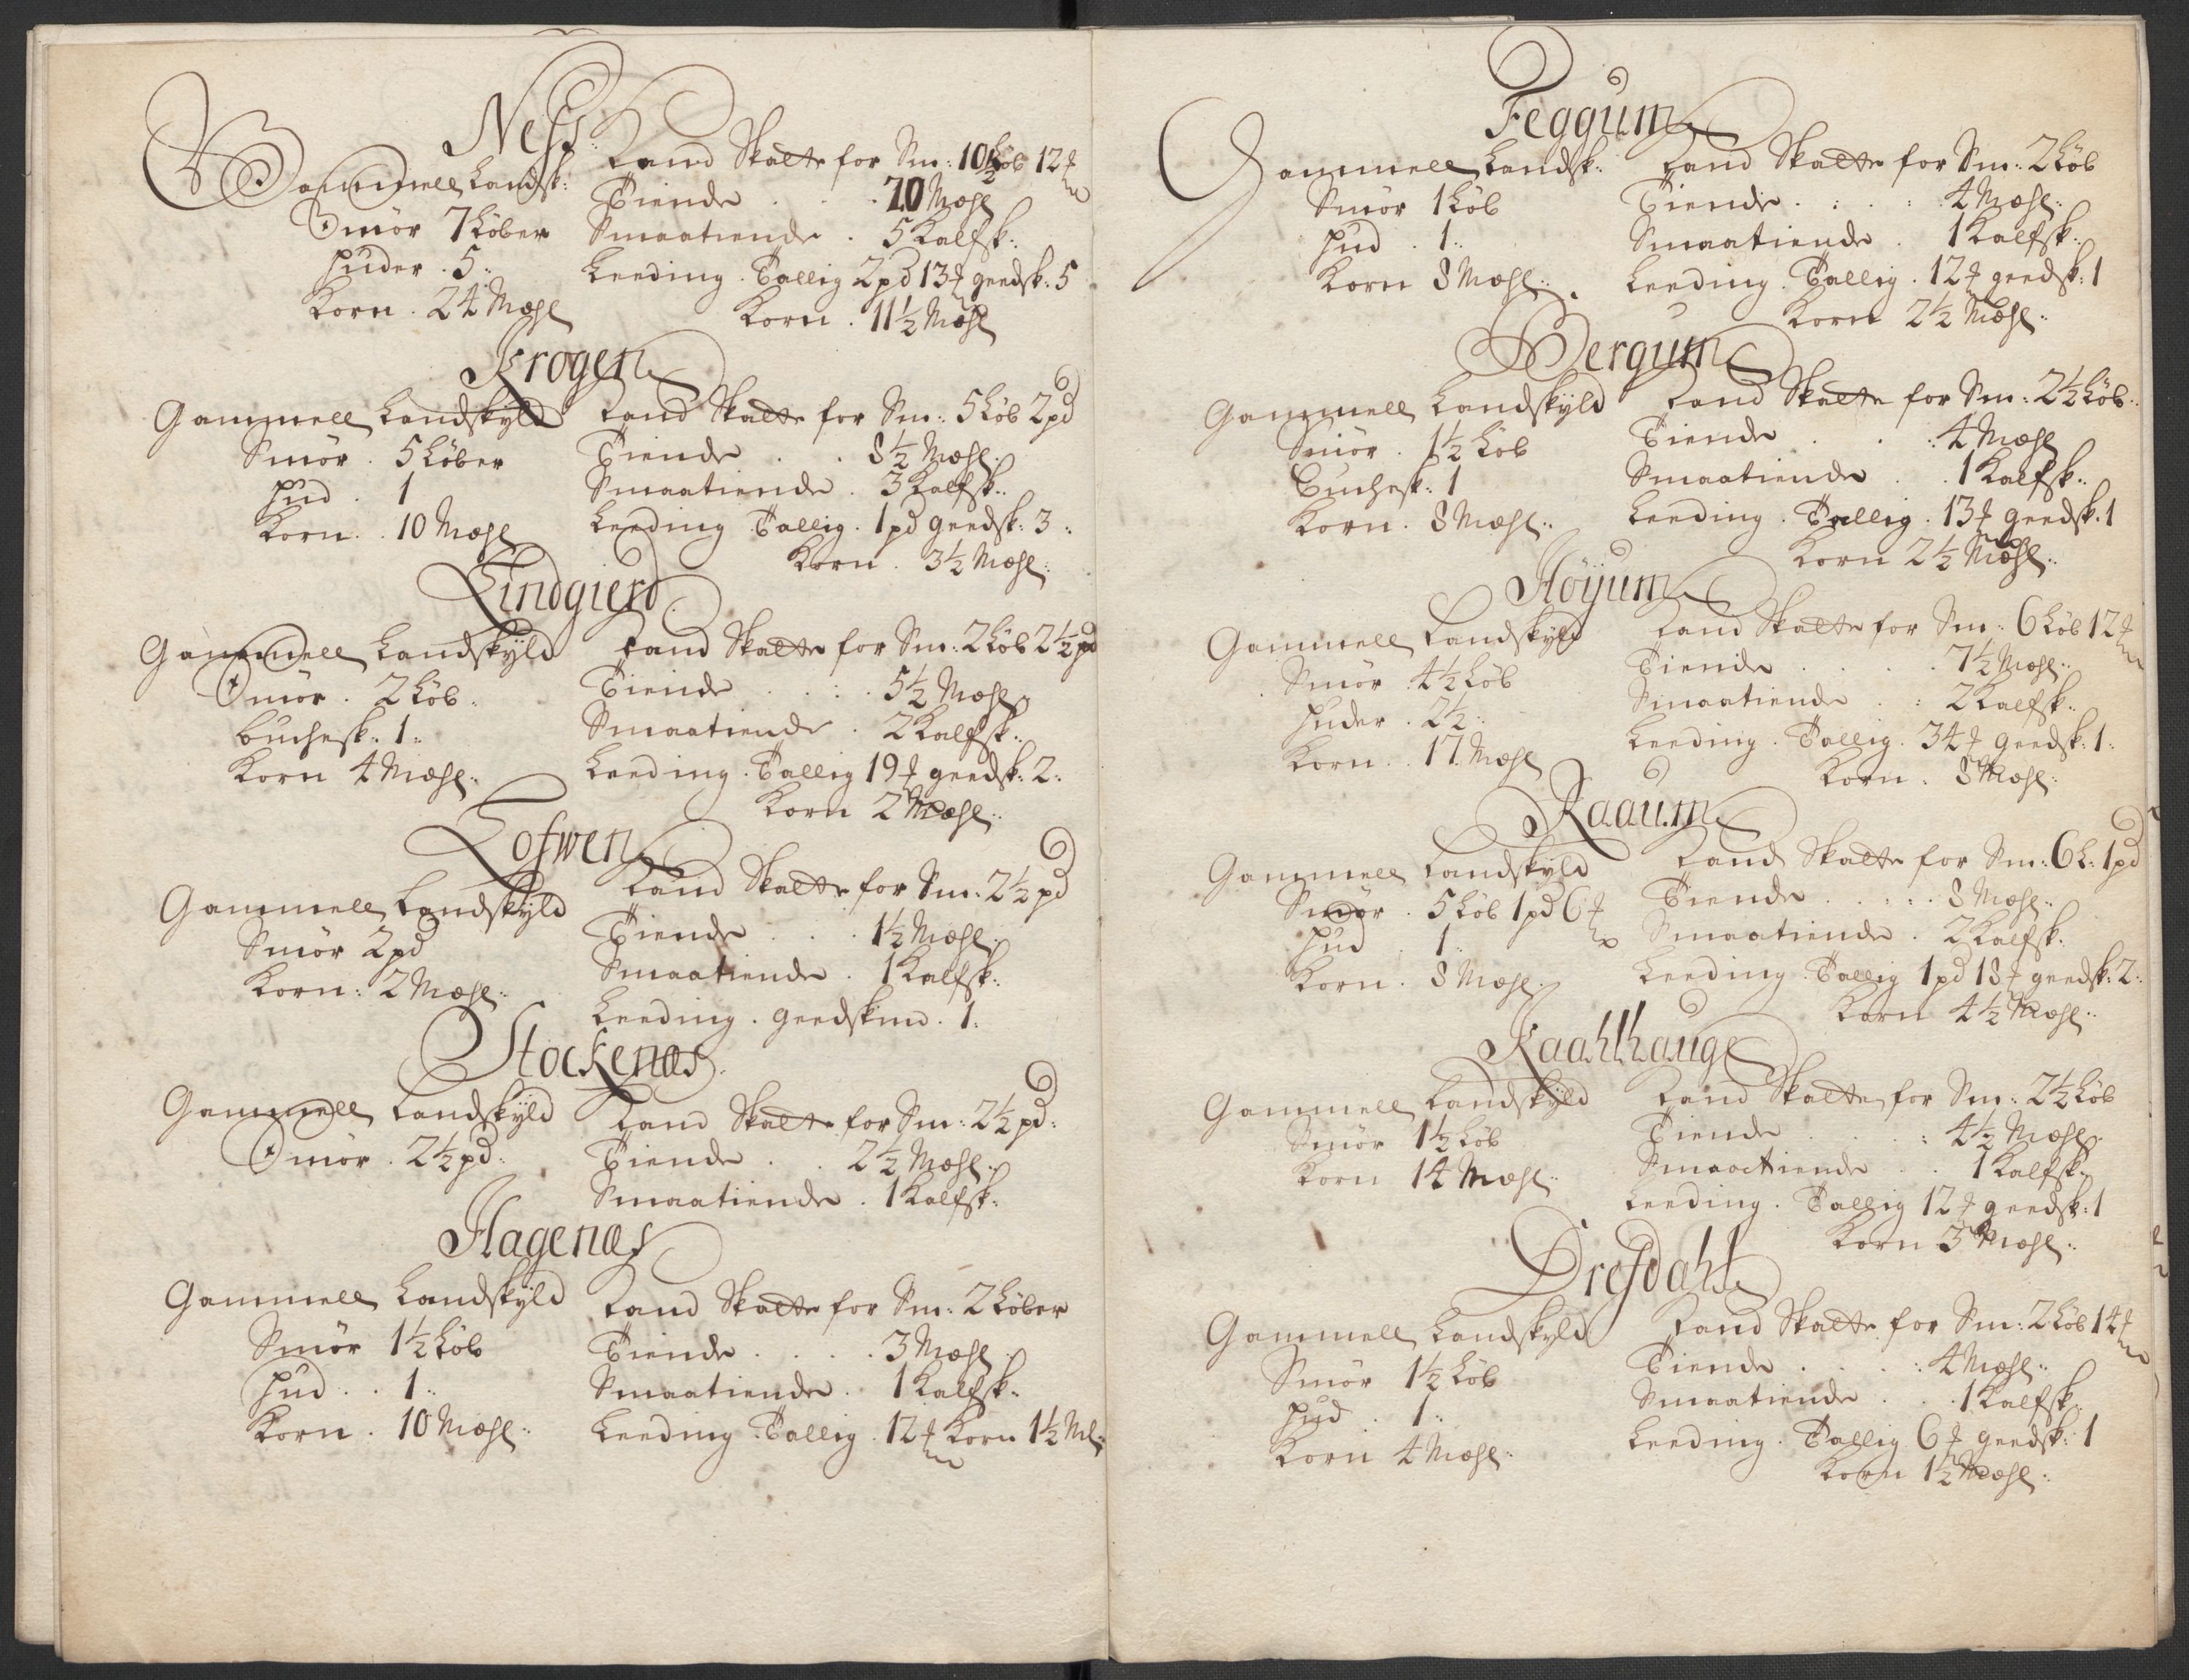 Ness
Gammell Landsk:
Smör 7 Löber
Huder . 5 :
Korn . 24 Mæhl
Land Skatte for Sm: 10½ Löb 12 ℔
Tiende . . . 20 Mæhl
Smaatiende . 5 Kalfsk:
Leeding . Tallig 2 pd 13 ℔ geedsk: 5
Korn . 11½ Mæhl
Krogen
Gammell Landskÿld
Smör . 5 Löber
Hud . 1
Korn . . 10 Mæhl
Land Skatte for Sm: 5 Löb 2 pd
Tiende . . 8½ Mæhl:
Smaatiende . 3 Kalfsk:
Leeding Tallig . 1 pd geedsk: 3 :
Korn . 3½ Mæhl:
Lindgierd
Gammell Landskÿld
Smör . 2 Löb .
Buchesk: 1 :
Korn 4 Mæhl:
Land Skatte for Sm: 2 Löb 2½ pd
Tiende . . : . 5½ Mæhl
Smaatiende . 2 Kalfsk:
Leeding . Tallig 19 ℔ geedsk: 2 :
Korn 2 Mæhl:
Lofwen
Gammell Landskÿld
Smör 2 pd
Korn: 2 Mæhl:
Land Skatte for Sm: 2½ pd
Tiende . . . 1½ Mæhl:
Smaatiende . 1 Kalfsk:
Leeding . geedskind . 1 :
Stockenæs
Gammell Landskÿld
Smör . 2½ pd:
Land Skatte for Sm: 2½ pd:
Tiende . . 2½ Mæhl:
Smaatiende . 1 Kalfsk:
Hagenæs
Gammell Landskÿld
Smör 1½ Löb
Hud . . 1 :
Korn . 10 Mæhl:
Land Skatte for Sm: 2 Löber
Tiende . . . . 3 Mæhl:
Smaatiende . 1 Kalfsk:
Leeding Tallig . 12 ℔ Korn 1½ Ml:
Feggum
Gammell Landsk:
Smör 1 Löb
Hud . 1 :
Korn 8 Mæhl:
Land Skatte for Sm: 2 Löb
Tiende . : . : 4 Mæhl:
Smaatiende . 1 Kalfsk:
Leeding . Tallig . 12 ℔ geedsk: 1
Korn 2½ Mæhl:
Bergum
Gammell Landskÿld
Smör . 1½ Löb
Buchesk: 1
Korn . 8 Mæhl:
Land Skatte for Sm: 2½ Löb:
Tiende . . : 4 Mæhl
Smaatiende . . 1 Kalfsk:
Leeding . Tallig . 13 ℔ geedsk: 1
Korn 2½ Mæhl:
Höÿum
Gammell Landskÿld
Smör . 4½ Löb
Huder . 2½ :
Korn . . 17 Mæhl
Land Skatte for Sm: 6 Löb 12 ℔
Tiende . . . . 7½ Mæhl:
Smaatiende . : 2 Kalfsk:
Leeding . Tallig . 34 ℔ geedsk: 1 :
Korn . 8 Mæhl:
Raaum
Gammell Landskÿld
Smör . 5 Löb 1 pd 6 ℔
Hud . 1 :
Korn . 8 Mæhl:
Land Skatte for Sm: 6 L: 1 pd
Tiende . . : : . 8 Mæhl:
Smaatiende . 2 Kalfsk:
Leeding . Tallig 1 pd 18 ℔ geedsk: 2 :
Korn 4½ Mæhl:
Kaahlhauge
Gammell Landskÿld
Smör 1½ Löb
Korn 14 Mæhl:
Land Skatte for Sm: 2½ Löb
Tiende . . . : 4½ Mæhl:
Smaatiende . . 1 Kalfsk:
Leeding . Tallig 12 ℔ geedsk: 1
Korn 3 Mæhl:
Dresdahl
Gammell Landskÿld
Smör 1½ Löb
Hud . 1 :
Korn 4 Mæhl:
Land Skatte for Sm: 2 Löb 14 ℔
Tiende . . . : 4 Mæhl:
Smaatiende . . 1 Kalfsk:
Leeding . Tallig 6 ℔ geedsk: 1
Korn 1½ Mæhl: